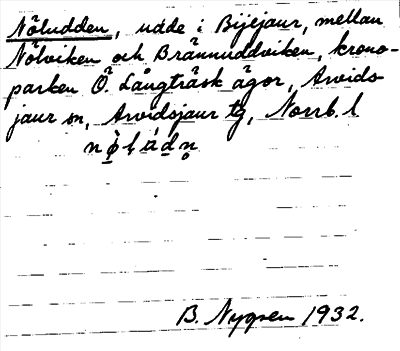 Nöludden, udde i Bijejaur, mellan
Nölviken och Brännuddviken, krono-
parken Ö. Långträsk ägor, Arvids-
jaur sn, Arvidsjaur tg, Norrb. l
B. Nygren 1932.